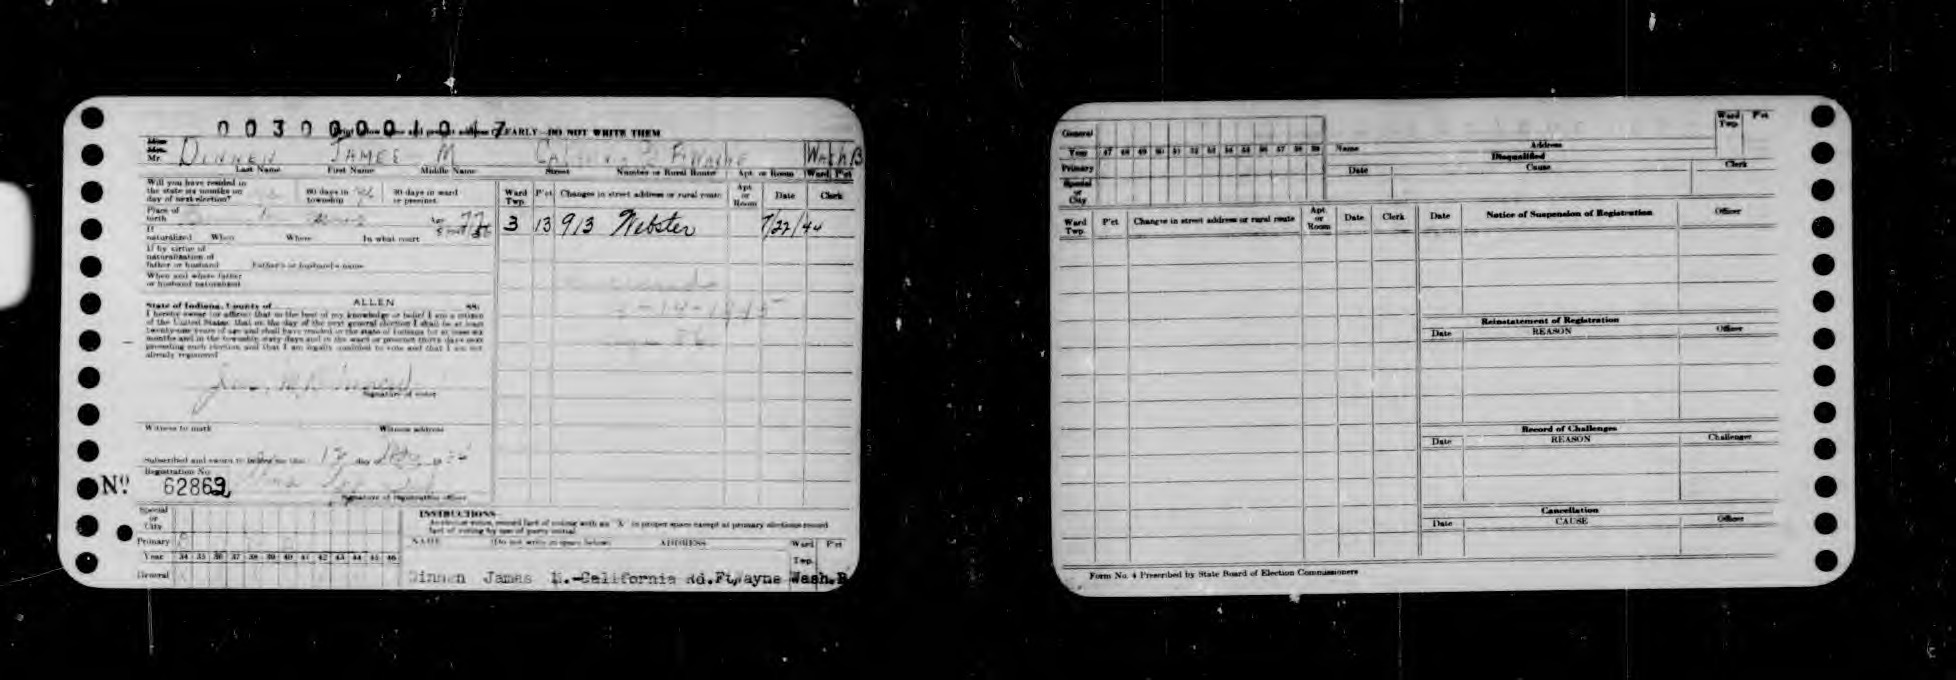 003000010 17
Print below name and present address CLEARLY—DO NOT WRITE THEM
Miss
Mrs.
Mr. DINNEN JAMES M Ft Wayne Wash B
Last Name First Name Middle Name Street Number or Rural Route Apt. or Room Ward P'ct
Will you have resided in the state six months on day of next election? 60 days in township 30 days in ward or precinct
Place of birth
If naturalized When Where In what court
If by virtue of naturalization of father or husband Father's or husband's name
When and where father or husband naturalized
Ward Twp. P'ct Changes in street address or rural route Apt. or Room Date Clerk
3 13 913 Webster 7/22/44
State of Indiana, County of ALLEN ss:
I hereby swear (or affirm) that to the best of my knowledge or belief I am a citizen
of the United States; that on the day of the next general election I shall be at least
twenty-one years of age and shall have resided in the state of Indiana for at least six
months and in the township sixty days and in the ward or precinct thirty days next
preceding such election and that I am legally qualified to vote and that I am not
already registered
Signature of voter
Witness to mark Witness address
Subscribed and sworn to before me this day of
Registration No.
No. 62869
Signature of registration officer
Special or City
Primary
Year 34 35 36 37 38 39 40 41 42 43 44 45 46
General
INSTRUCTIONS
At election voter, record fact of voting with an "X" in proper space except at primary elections record
fact of voting by use of party initial
NAME (Do not write in space below) ADDRESS Ward Twp. P'ct
Dinnen James M.-California Rd.Ft.Wayne Wash.B
General
Year 47 48 49 50 51 52 53 54 55 56 57 58 59
Primary
Special or City
Name Address Ward Twp. P'ct
Disqualified
Date Cause Clerk
Ward Twp. P'ct Changes in street address or rural route Apt. or Room Date Clerk
Date Notice of Suspension of Registration Officer
Reinstatement of Registration
Date REASON Officer
Record of Challenges
Date REASON Challenger
Cancellation
Date CAUSE Officer
Form No. 4 Prescribed by State Board of Election Commissioners